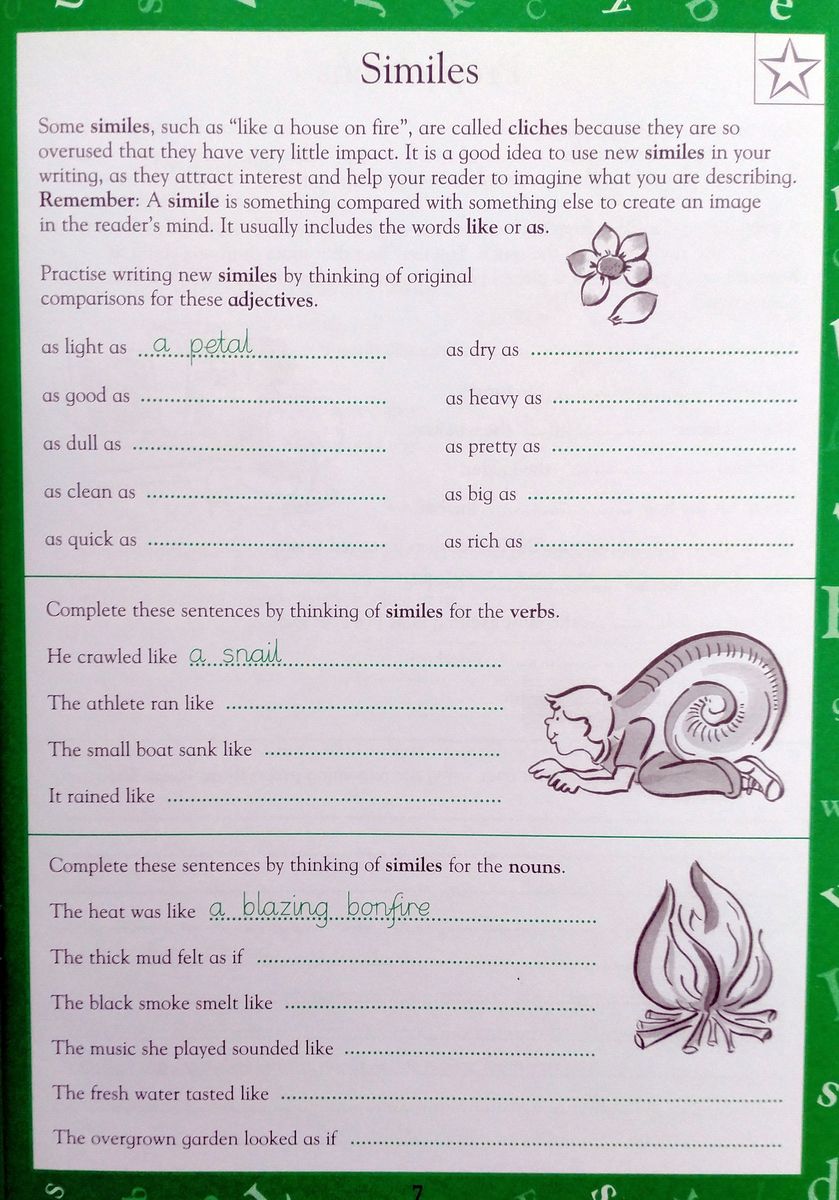 Similes
Some similes, such as “like a house on fire”, are called cliches because they are so
overused that they have very little impact. It is a good idea to use new similes in your
writing, as they attract interest and help your reader to imagine what you are describing.
Remember: A simile is something compared with something else to create an image
in the reader’s mind. It usually includes the words like or as.
Practise writing new similes by thinking of original
comparisons for these adjectives.
as light as a petal
as good as
as dull as
as clean as
as quick as
as dry as
as heavy as
as pretty as
as big as
as rich as
Complete these sentences by thinking of similes for the verbs.
He crawled like a snail
The athlete ran like
The small boat sank like
It rained like
Complete these sentences by thinking of similes for the nouns.
The heat was like a blazing bonfire
The thick mud felt as if
The black smoke smelt like
The music she played sounded like
The fresh water tasted like
The overgrown garden looked as if
7